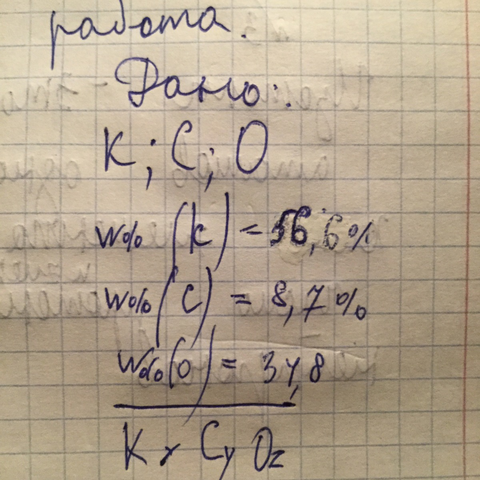 работа.
Дано:
K; C; O
W% (K) = 56,6%
W% (C) = 8,7%
W% (O) = 34,8
Kx Cy Oz